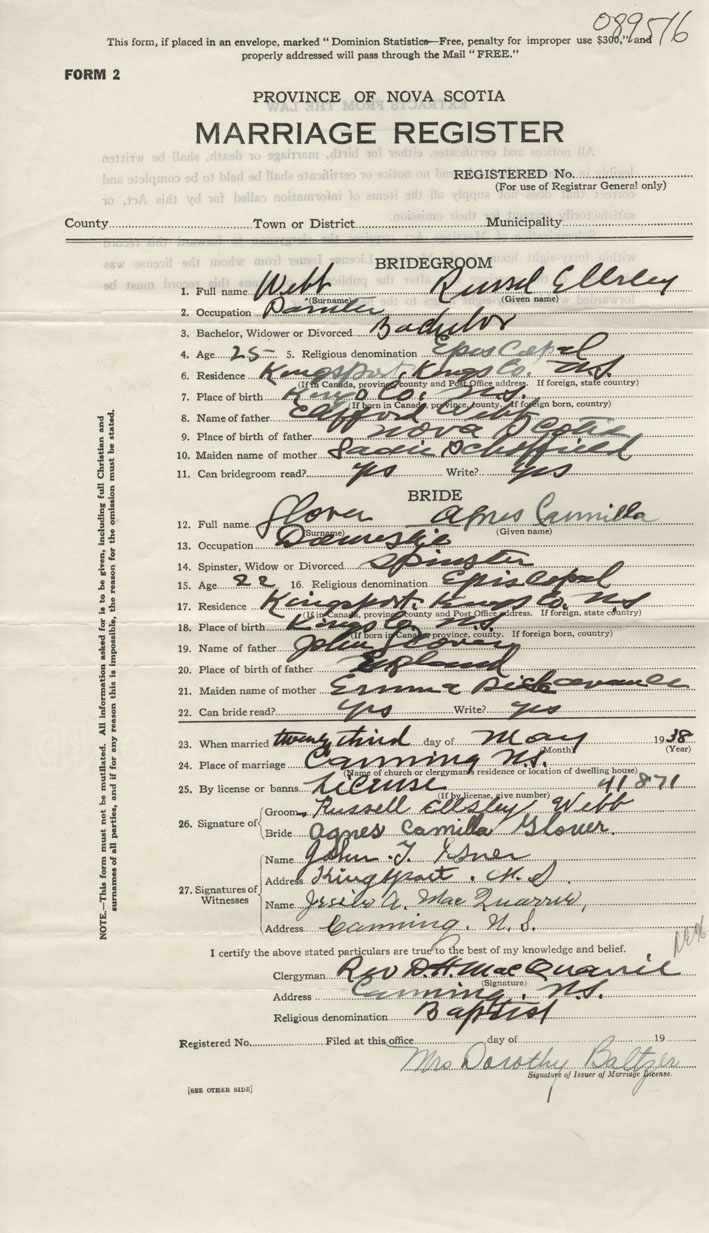 089516
This form, if placed in an envelope, marked "Dominion Statistics—Free, penalty for improper use $300," and
properly addressed will pass through the Mail "FREE."
FORM 2
PROVINCE OF NOVA SCOTIA
MARRIAGE REGISTER
REGISTERED No.
(For use of Registrar General only)
County Town or District Municipality
BRIDEGROOM
1. Full name Webb Russel Ellsley
(Surname) (Given name)
2. Occupation Painter
3. Bachelor, Widower or Divorced Bachelor
4. Age 25 5. Religious denomination Episcopal
6. Residence Kingsport, Kings Co. N.S.
(If in Canada, province, county and Post Office address. If foreign, state country)
7. Place of birth Kings Co. N.S.
(If born in Canada, province, county. If foreign born, country)
8. Name of father Clifford Webb
9. Place of birth of father Nova Scotia
10. Maiden name of mother Sadie Schofield
11. Can bridegroom read? yes Write? yes
BRIDE
12. Full name Glover Agnes Cammilla
(Surname) (Given name)
13. Occupation Domestic
14. Spinster, Widow or Divorced Spinster
15. Age 22 16. Religious denomination Episcopal
17. Residence Kingsport, Kings Co. N.S
(If in Canada, province, county and Post Office address. If foreign, state country)
18. Place of birth Kings Co. N.S.
(If born in Canada, province, county. If foreign born, country)
19. Name of father John Glover
20. Place of birth of father England
21. Maiden name of mother Emma
22. Can bride read? yes Write? yes
23. When married twenty third day of May 1938
(Month) (Year)
24. Place of marriage Canning N.S.
(Name of church or clergyman's residence or location of dwelling house)
25. By license or banns License 41871
(If by license, give number)
26. Signature of Groom Russell Ellsley Webb
Bride Agnes Camilla Glover.
27. Signatures of Witnesses
Name John T.
Address Kingsport. N.S.
Name A. MacQuarrie,
Address Canning, N.S.
I certify the above stated particulars are true to the best of my knowledge and belief.
Clergyman Rev D.H. MacQuarrie
(Signature)
Address Canning, N.S.
Religious denomination Baptist
Registered No. Filed at this office day of 19
Mrs Dorothy Baltzer
Signature of Issuer of Marriage License.
[SEE OTHER SIDE]
NOTE.—This form must not be mutilated. All information asked for is to be given, including full Christian and
surnames of all parties, and if for any reason this is impossible, the reason for the omission must be stated.